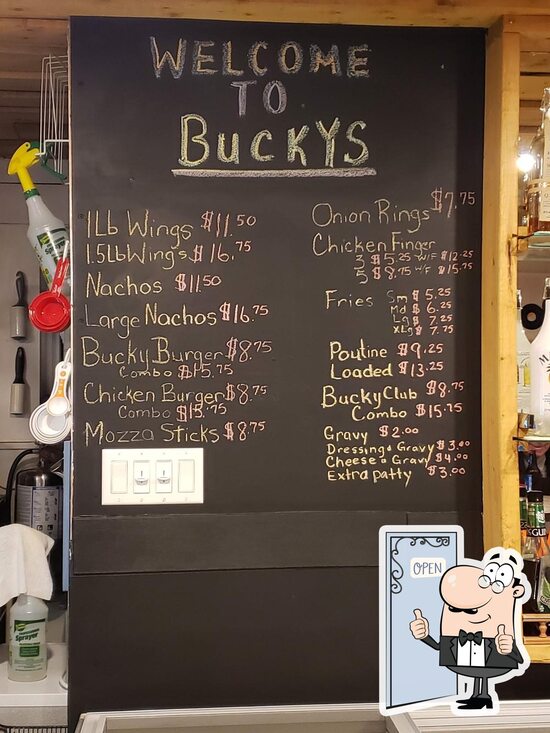 WELCOME
TO
BUCKYS
1Lb Wings $11.50
1.5Lb Wings $16.75
Nachos $11.50
Large Nachos $16.75
Bucky Burger $8.75
Combo $15.75
Chicken Burger $8.75
Combo $15.75
Mozza Sticks $8.75
Onion Rings $7.75
Chicken Finger
3 $5.25 w/F $12.25
5 $8.75 w/F $15.75
Fries Sm $5.25
Md $6.25
Lg $7.25
XLg $7.75
Poutine $9.25
Loaded $13.25
Bucky Club $8.75
Combo $15.75
Gravy $2.00
Dressing & Gravy $3.00
Cheese & Gravy $4.00
Extra patty $3.00
OPEN
Sprayer